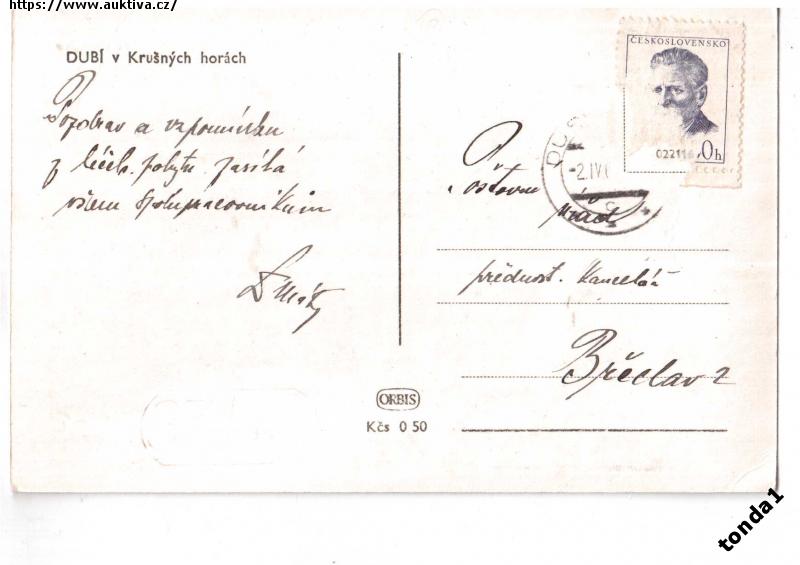 https://www.auktiva.cz/
DUBÍ v Krušných horách
Pozdrav a vzpomínku
z léčeb. pobytu zasílá
všem spolupracovníkům
ČESKOSLOVENSKO
0h
022116
-2.IV
Poštovní
úřad
přednost. kancelář
Břeclav 2
ORBIS
Kčs 0 50
tonda1